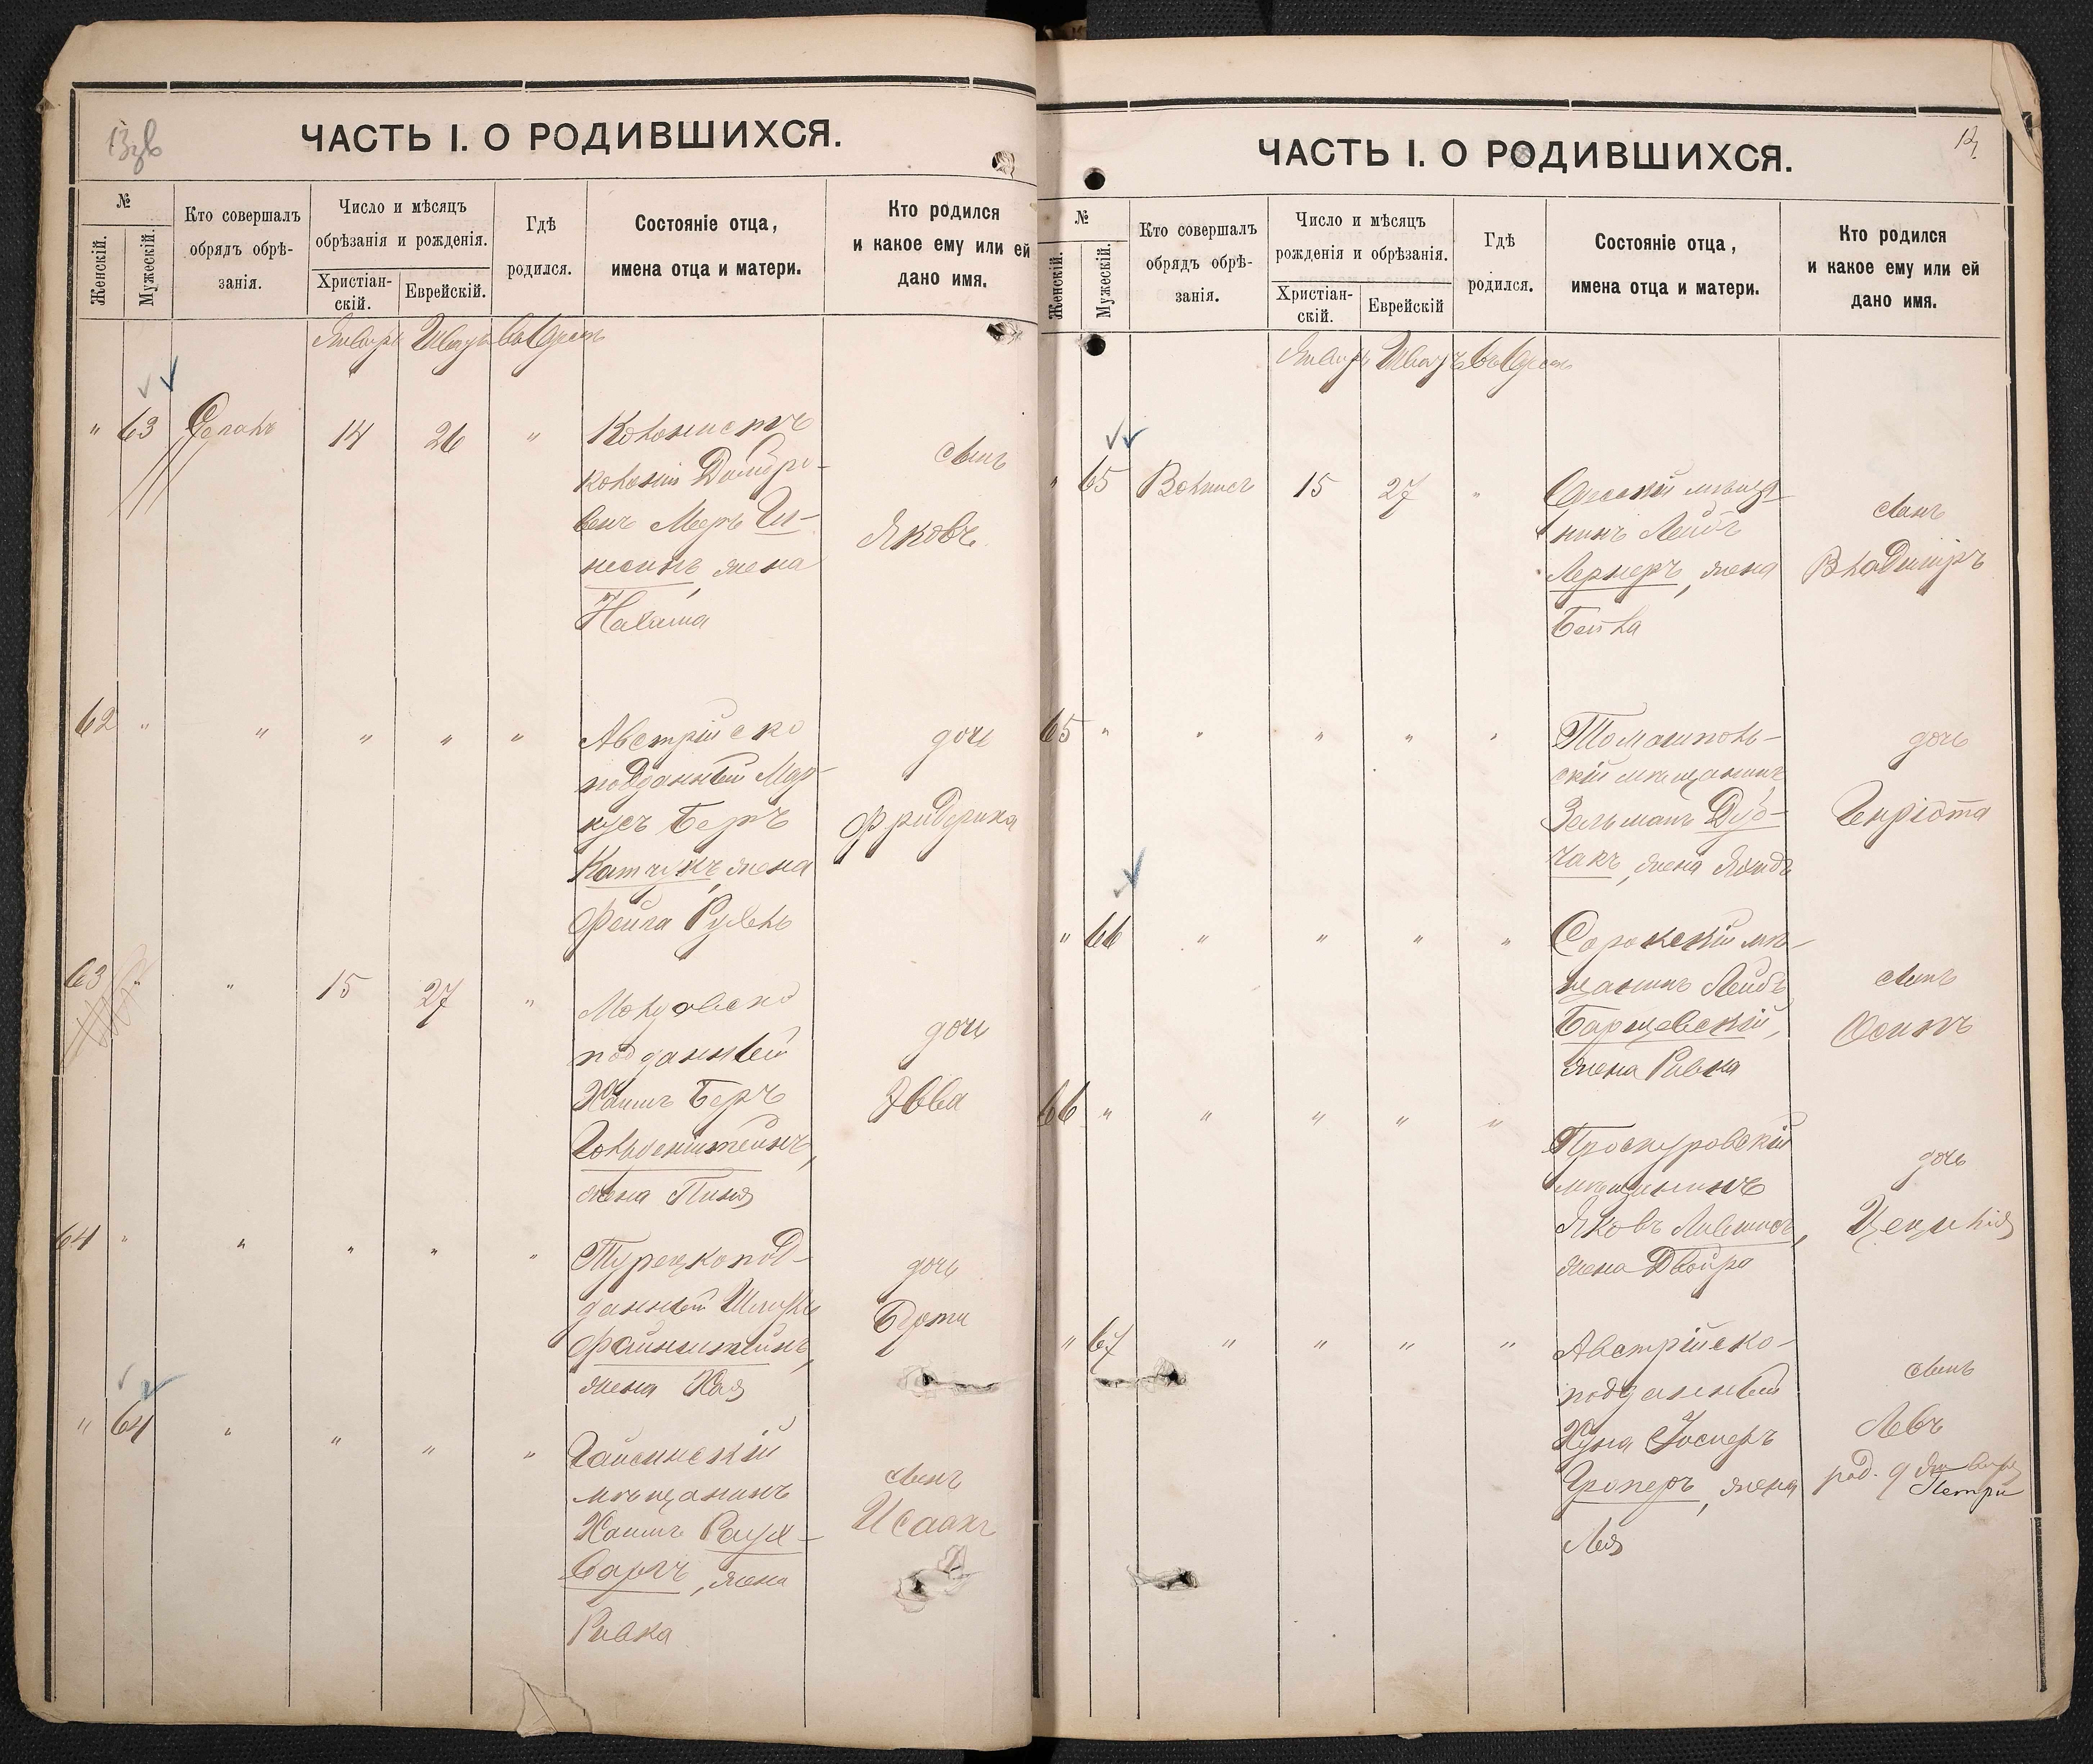 ЧАСТЬ I. О РОДИВШИХСЯ.
№
Женскій.
Мужескій.
Кто совершалъ
обрядъ обрѣ-
занія.
Число и мѣсяцъ
обрѣзанія и рожденія.
Христіан-
скій.
Еврейскій.
Гдѣ
родился.
Состояніе отца,
имена отца и матери.
Кто родился
и какое ему или ей
дано имя.
Январь Шватъ
" 63
14 26 "
Колонистъ
колоніи
сынъ
Яковъ
жена
62 " " " " "
Австрійско
подданный Мар-
кусъ Беръ
жена
Фейга Рухель
дочь
Фридерика
63 " " 15 27 "
подданный
Хаимъ Беръ
Гольденштейнъ,
жена
дочь
64 " " " " "
Турецкопод-
данный
Файнштейнъ,
жена Хая
дочь
Берта
" 64 " " " "
Гайсинскій
мѣщанинъ
Хаимъ Раух-
варгъ, жена
Ривка
сынъ
Исаакъ
ЧАСТЬ I. О РОДИВШИХСЯ.
№
Женскій.
Мужескій.
Кто совершалъ
обрядъ обрѣ-
занія.
Число и мѣсяцъ
рожденія и обрѣзанія.
Христіан-
скій.
Еврейскій
Гдѣ
родился.
Состояніе отца,
имена отца и матери.
Кто родился
и какое ему или ей
дано имя.
Январь Шватъ
" 65 15 27 "
Одесскій мѣща-
нинъ Лейбъ
Лернеръ, жена
Бейла
сынъ
Владиміръ
65 " " " " "
Томашполь-
скій мѣщанинъ
Зельманъ Дуб-
чакъ, жена
дочь
Генріэта
" 66 " " " "
Сорокскій мѣ-
щанинъ Лейбъ
Барщевскій,
жена Ривка
сынъ
Осипъ
66 " " " " "
Проскуровскій
мѣщанинъ
Яковъ Лившицъ,
жена Двойра
дочь
Цецилія
" 67 " " " "
Австрійско-
подданный
жена
Лея
сынъ
Левъ
род. 9 Января